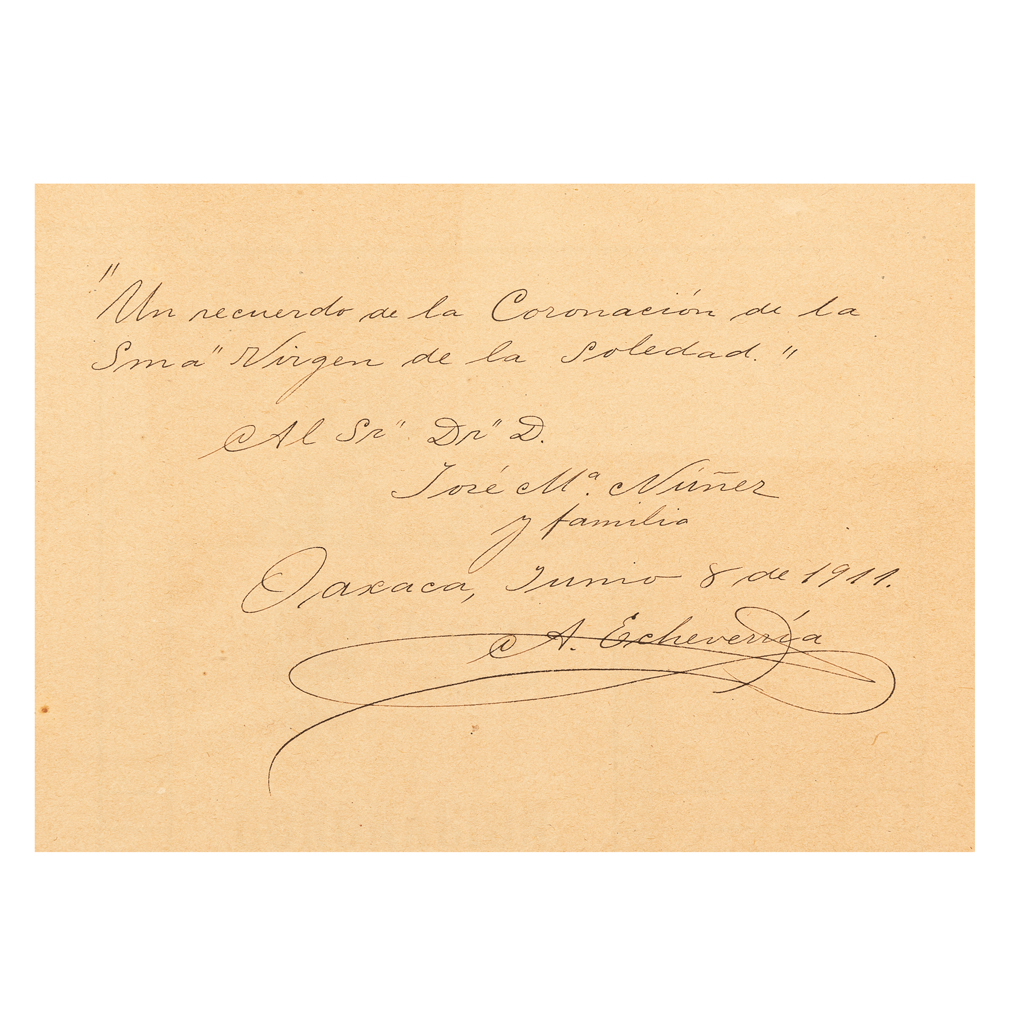 "Un recuerdo de la Coronación de la
Sma" Virgen de la Soledad."
Al Sr" Dr" D.
José Mª. Núñez
y familia
Oaxaca, Junio 8 de 1911.
A. Echeverría